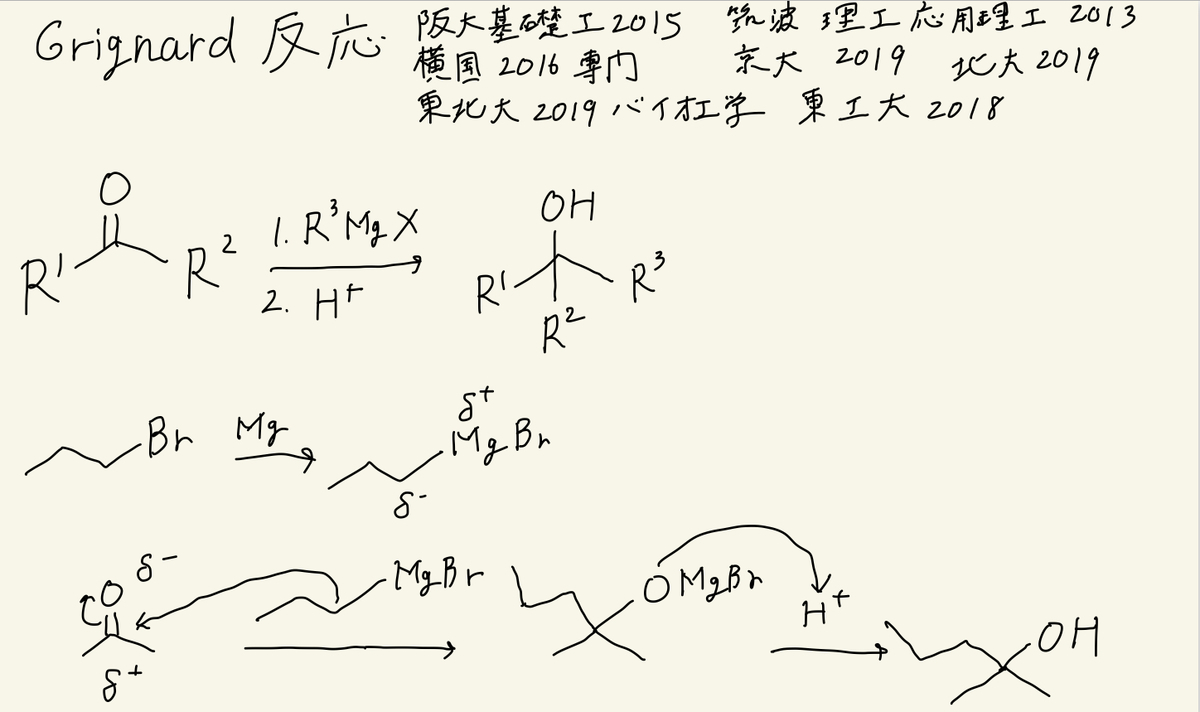 Grignard 反応
阪大基礎工2015 筑波 理工応用理工 2013
横国 2016 専門 京大 2019 北大2019
東北大 2019 バイオ工学 東工大 2018
O
R¹ R² 1. R³MgX
2. H⁺
OH
R¹ R³
R²
Br Mg δ⁺
MgBr
δ⁻
O δ⁻
δ⁺
MgBr
OMgBr
H⁺
OH